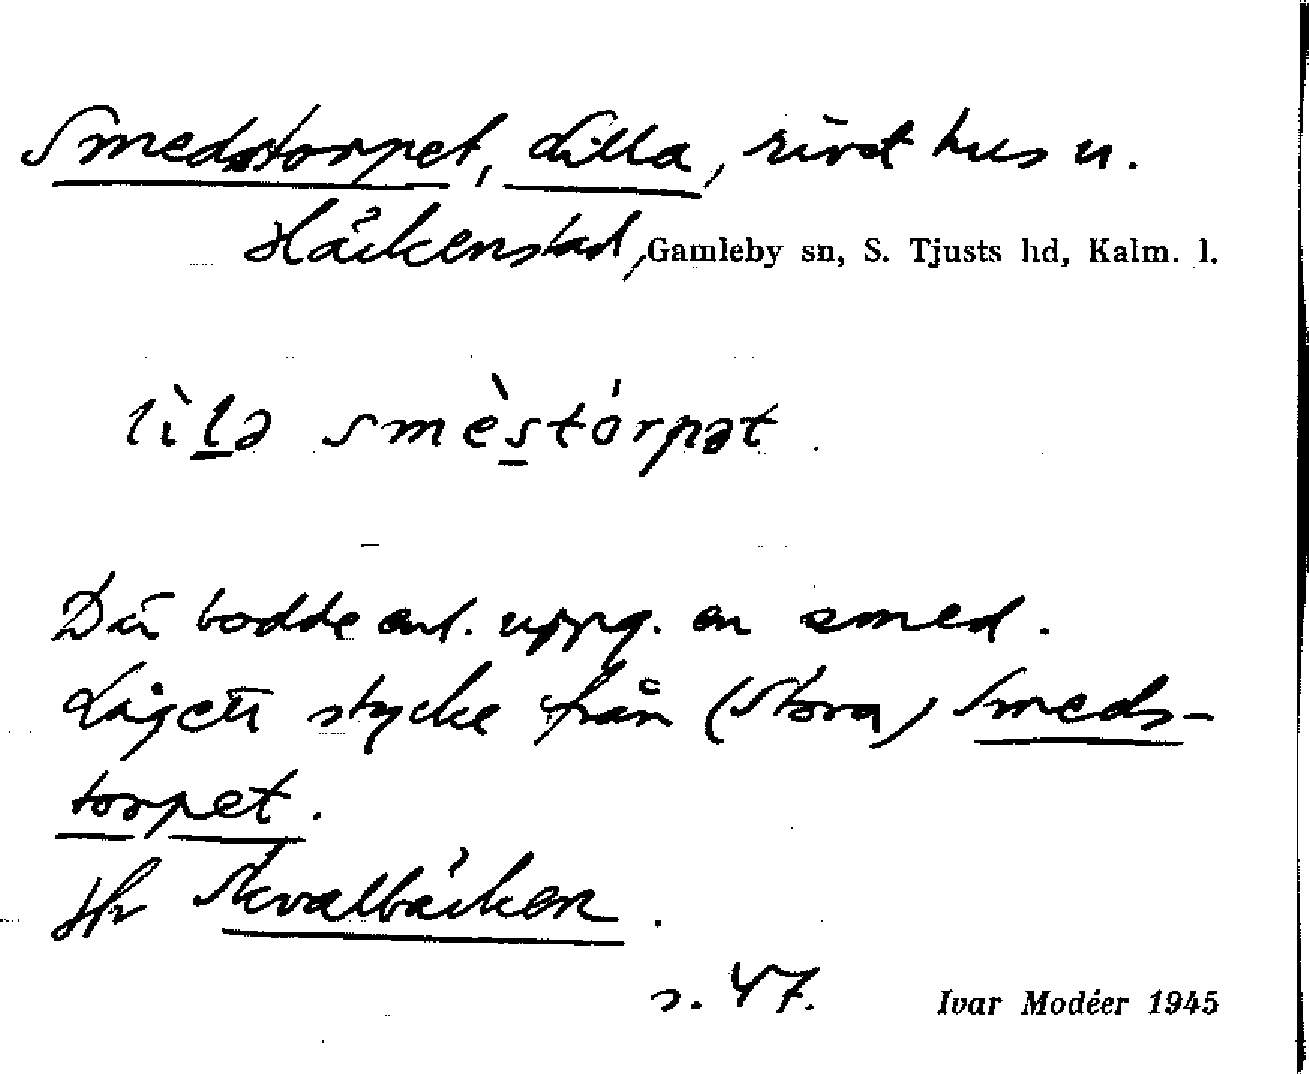 Smedstorpet, Lilla, rivet hus u.
Häckenstad, Gamleby sn, S. Tjusts hd, Kalm. l.
lìlə smèstórpət.
Där bodde enl. uppg. en smed.
Låg ett stycke från (Stora) Smeds-
torpet.
Jfr Skvalbäcken.
s. 47. Ivar Modéer 1945